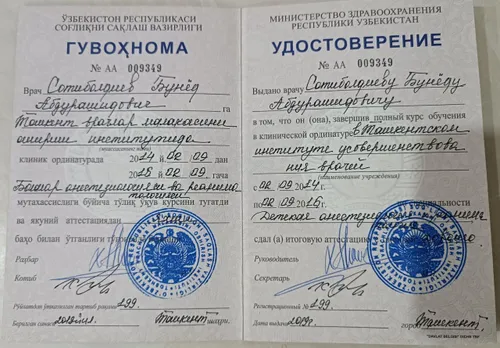 ЎЗБЕКИСТОН РЕСПУБЛИКАСИ
СОҒЛИҚНИ САҚЛАШ ВАЗИРЛИГИ
ГУВОҲНОМА
№ АА 009349
Врач Сотиболдиев Бунёд
Абдурашидович га
Тошкент врачлар малакасини
ошириш институтида
клиник ординатурада 20 й. 02 09 дан
20 й. 02 09
Болалар анестезиологияси ва реанима
мутахассислиги бўйича тўлиқ ўқув курсини тугатди
ва якуний аттестациядан
баҳо билан ўтганлиги тўғрисида
Раҳбар
Котиб
Рўйхатдан ўтказилган тартиб рақами 199
Берилган санаси Тошкент шаҳри.
МИНИСТЕРСТВО ЗДРАВООХРАНЕНИЯ
РЕСПУБЛИКИ УЗБЕКИСТАН
УДОСТОВЕРЕНИЕ
№ АА 009349
Выдано врачу Сотиболдиеву Бунёду
Абдурашидовичу
в том, что он (она), завершив полный курс обучения
в клинической ординатуре в Ташкентском
институте усовершенствова
ния врачей
(наименование учреждения)
с 02 09 20 г.
по 02 09 20 г. по специальности
Детская
сдал (а) итоговую аттестацию
Руководитель
Секретарь
Регистрационный № 199
Дата выдачи город Ташкент